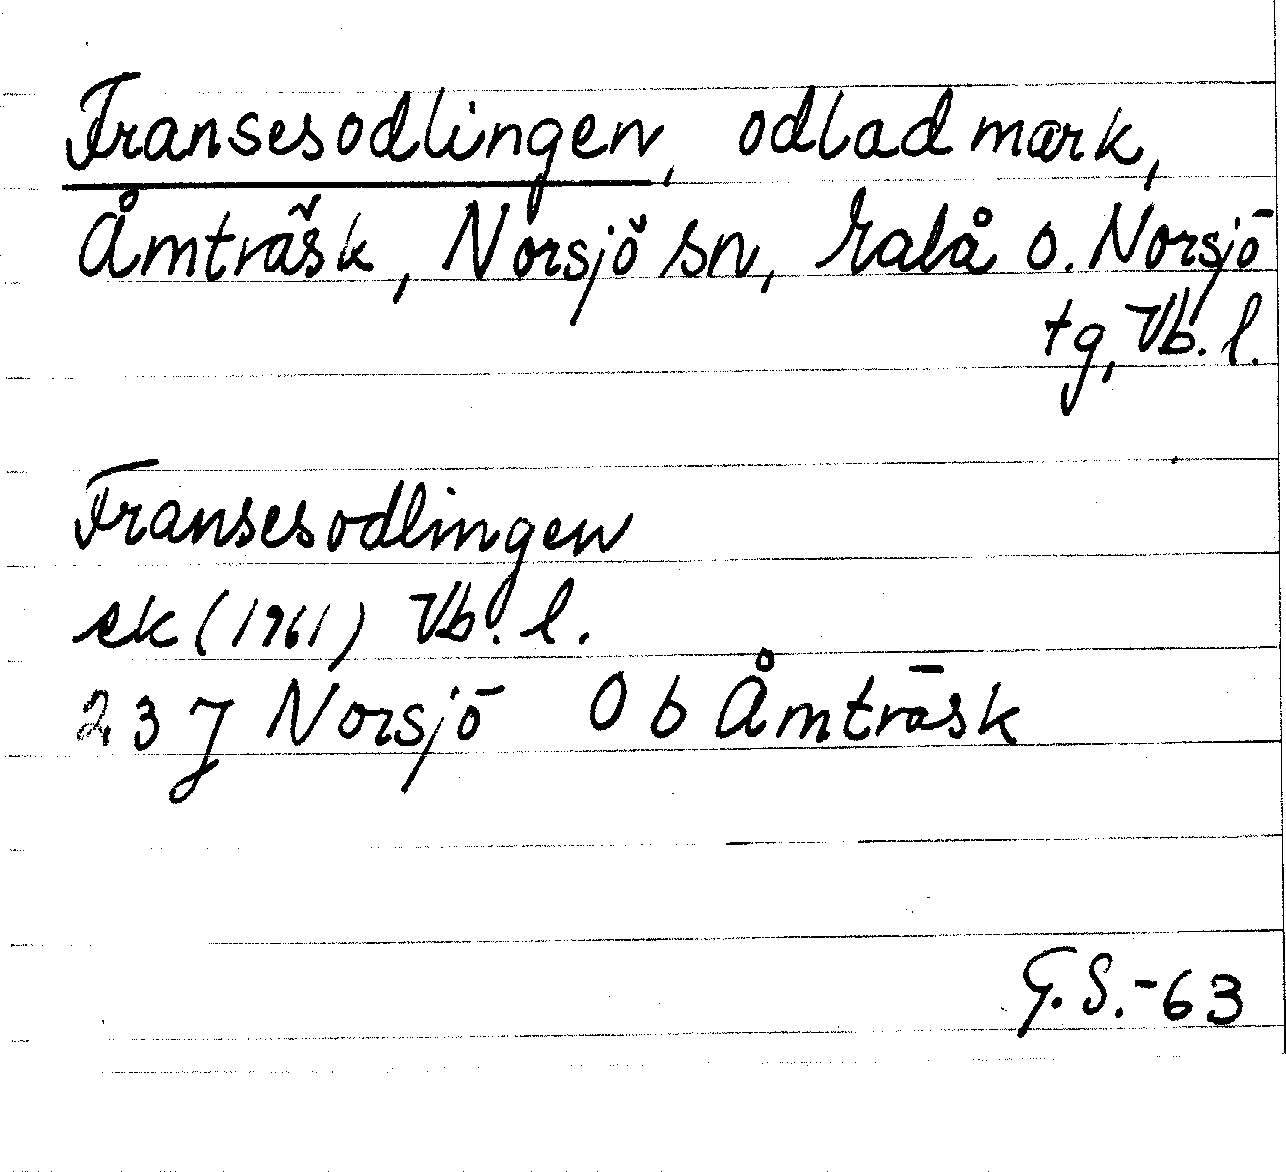 Fransesodlingen, odlad mark,
Åmträsk, Norsjö sn, Malå o. Norsjö
tg, Vb. l.
Fransesodlingen
ek (1961) Vb. l.
23 J Norsjö O b Åmträsk
G.S.-63